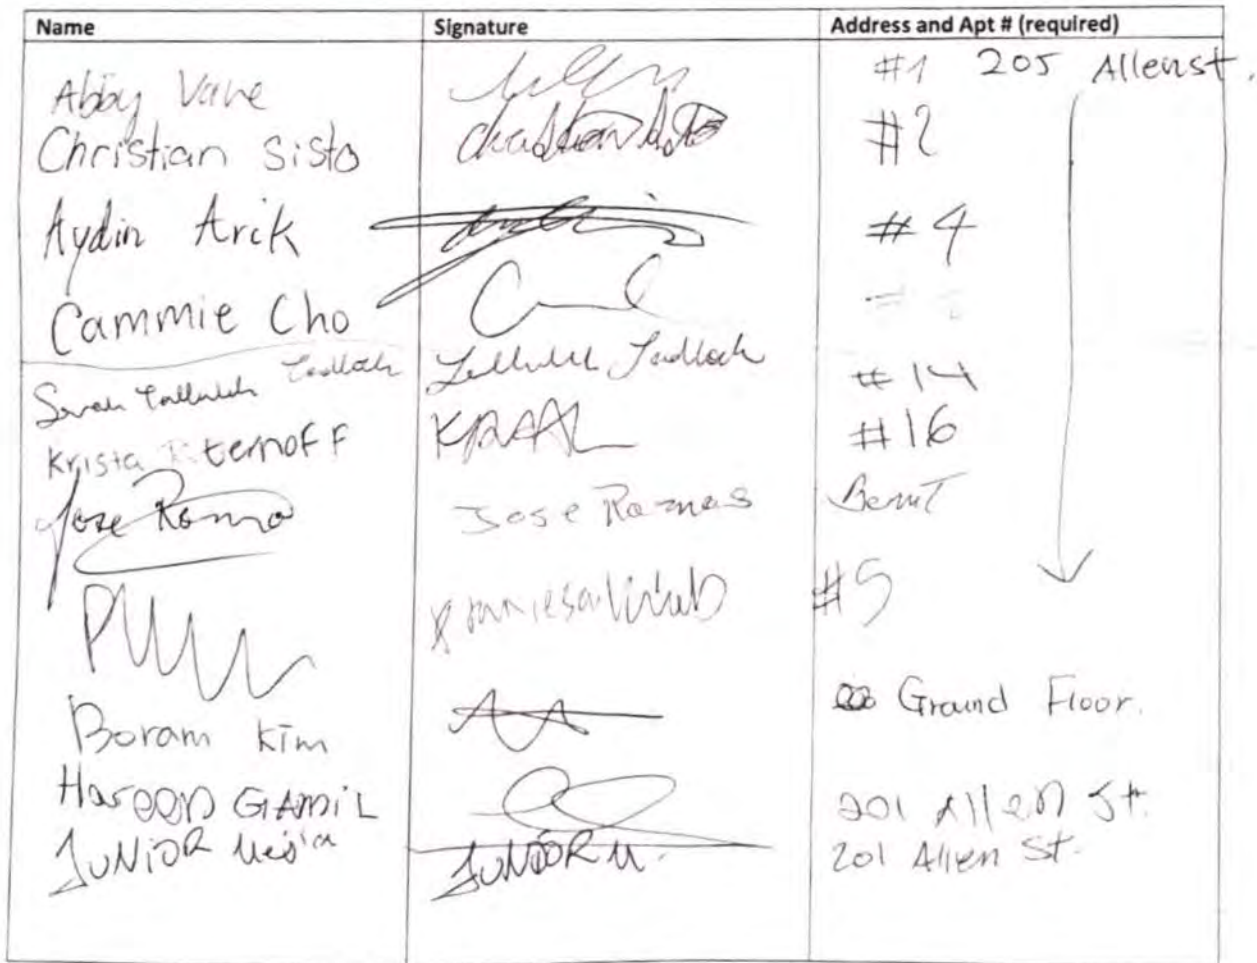 Name Signature Address and Apt # (required)
Abby Vane #1 205 Allen st.
Christian Sisto Christian Sisto #2
Aydin Arik #4
Cammie Cho
Sarah Tallulah Tadlock Tallulah Tadlock #14
Krista #16
Jose Jose
#5
Boram Kim Ground Floor.
Haroon GAMiL 201 Allen St.
JUNiOR JUNiOR M. 201 Allen St.